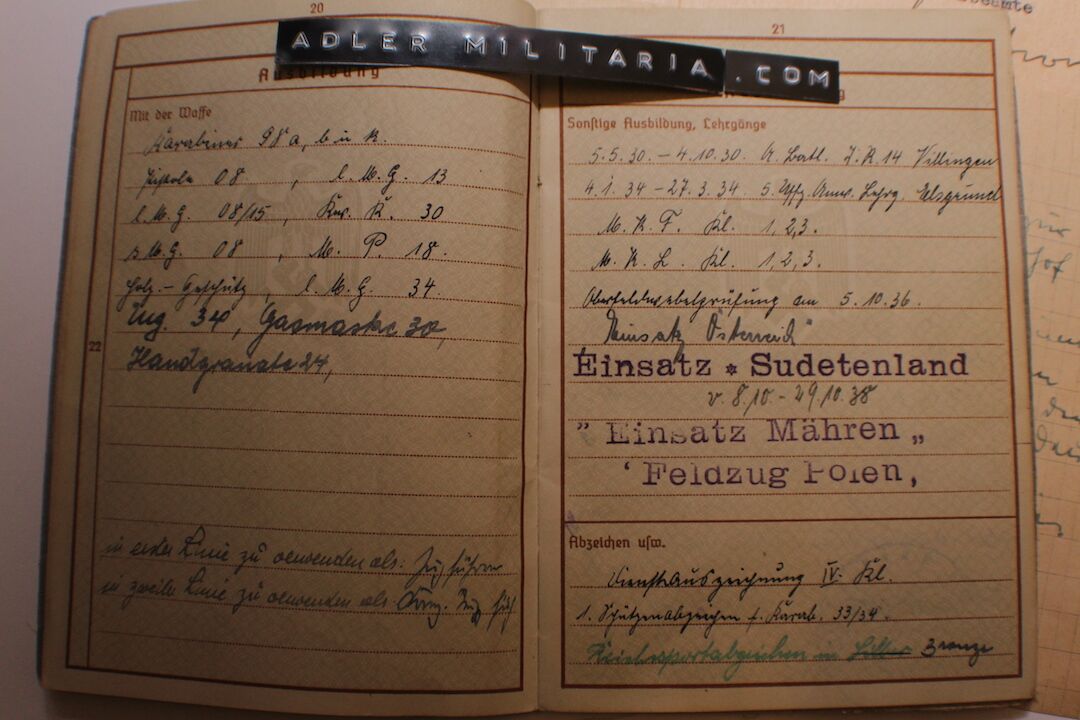 20
Ausbildung
Mit der Waffe
Karabiner 98 a, b u k.
Pistole 08 , l. M. G. 13
l. M. G. 08/15 , Knr. K. 30
s. M. G. 08 , M. P. 18.
Holz.- Geschütz, l. M. G. 34
Zug. 34, Gasmaske 30,
22
Handgranate 24,
in erster Linie zu verwenden als: Zugführer
in zweiter Linie zu verwenden als
ADLER MILITARIA.COM
21
Sonstige Ausbildung, Lehrgänge
5.5.30. – 4.10.30. A. Batl. I. R. 14 Villingen
4.1.34 – 27.3.34. 5. Uffz. Anw. Lehrg.
M. K. F. Kl. 1, 2, 3.
M. K. L. Kl. 1, 2, 3.
Oberfeldwebelprüfung am 5.10.36.
"Einsatz Österreich"
Einsatz * Sudetenland
v. 8.10. - 29.10.38
" Einsatz Mähren „
' Feldzug Polen,
Abzeichen usw.
Dienstauszeichnung IV. Kl.
1. Schützenabzeichen f. Karab. 33/34.
Reichssportabzeichen in Silber Bronze
eamte